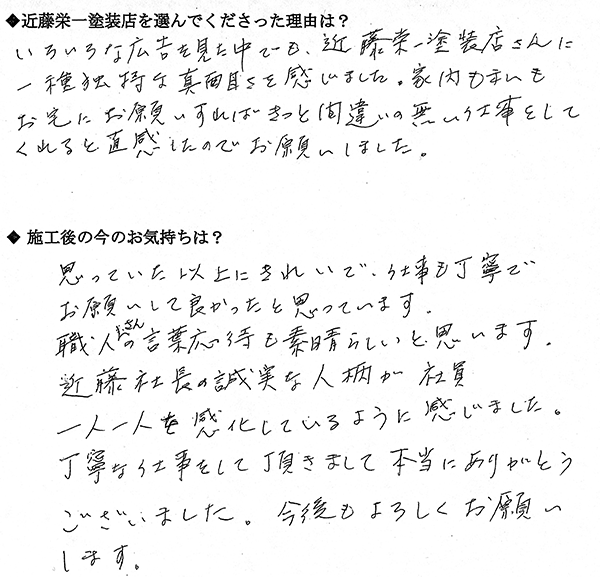 ◆近藤栄一塗装店を選んでくださった理由は？
いろいろな広告を見た中でも、近藤栄一塗装店さんに
一種独特な真面目さを感じました。家内も私も
お宅にお願いすればきっと間違いの無い仕事をして
くれると直感したのでお願いしました。
◆ 施工後の今のお気持ちは？
思っていた以上にきれいで、仕事も丁寧で
お願いして良かったと思っています。
職人さんの言葉応待も素晴らしいと思います。
近藤社長の誠実な人柄が 社員
一人一人を感化しているように感じました。
丁寧な仕事をして頂きまして本当にありがとう
ございました。今後もよろしくお願い
します。